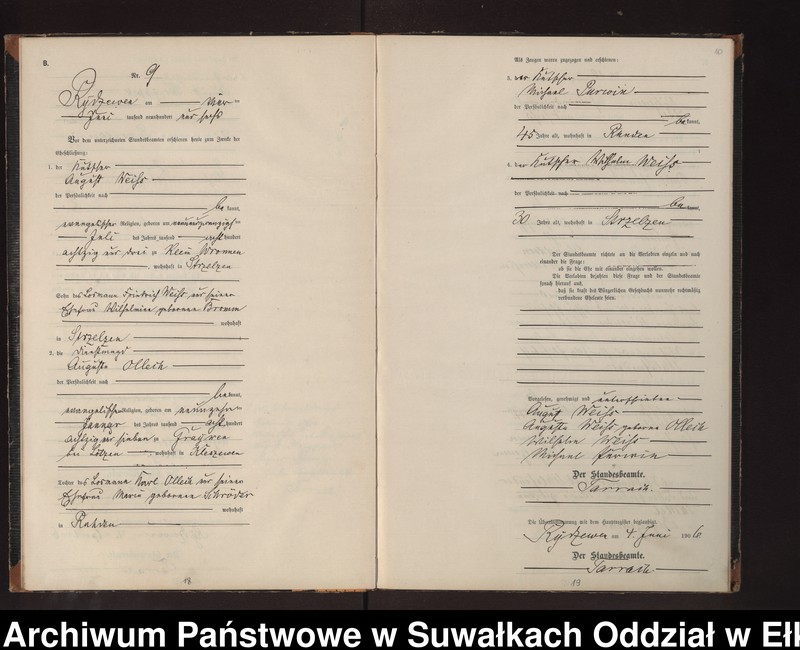 B.
Nr. 9
Rydzewen am vier ten
Juni tausend neunhundert und sechs
Vor dem unterzeichneten Standesbeamten erschienen heute zum Zwecke der
Eheschließung:
1. der Kutscher
August Weiss
der Persönlichkeit nach
be kannt,
evangelischer Religion, geboren am neunundzwanzigsten
Juli des Jahres tausend acht hundert
achtzig und drei zu Klein
wohnhaft in Strzelzen
Sohn des Losmann Friedrich Weiss und seiner
Ehefrau Wilhelmine geborenen
wohnhaft
in Strzelzen
2. die Dienstmagd
Auguste Olleck
der Persönlichkeit nach
be kannt,
evangelischer Religion, geboren am neunzehnten
Januar des Jahres tausend acht hundert
achtzig und sieben zu
bei Lötzen, wohnhaft in
Tochter des Losmann Karl Olleck und seiner
Ehefrau Marie geborenen Schröder
wohnhaft
in Ranten
18
10
Als Zeugen waren zugezogen und erschienen:
3. der Kutscher
Michael Purwin
der Persönlichkeit nach
be kannt,
45 Jahre alt, wohnhaft in Ranten
4. der Kutscher Wilhelm Weiss
der Persönlichkeit nach
be kannt,
30 Jahre alt, wohnhaft in Strzelzen
Der Standesbeamte richtete an die Verlobten einzeln und nach
einander die Frage:
ob sie die Ehe mit einander eingehen wollen.
Die Verlobten bejahten diese Frage und der Standesbeamte
sprach hierauf aus,
daß sie kraft des Bürgerlichen Gesetzbuchs nunmehr rechtmäßig
verbundene Eheleute seien.
Vorgelesen, genehmigt und unterschrieben
August Weiss
Auguste Weiss geborene Olleck
Wilhelm Weiss
Michael Purwin
Der Standesbeamte.
Tarrach.
Die Übereinstimmung mit dem Hauptregister beglaubigt.
Rydzewen am 4. Juni 1906
Der Standesbeamte.
Tarrach
19
Archiwum Państwowe w Suwałkach Oddział w Ełk